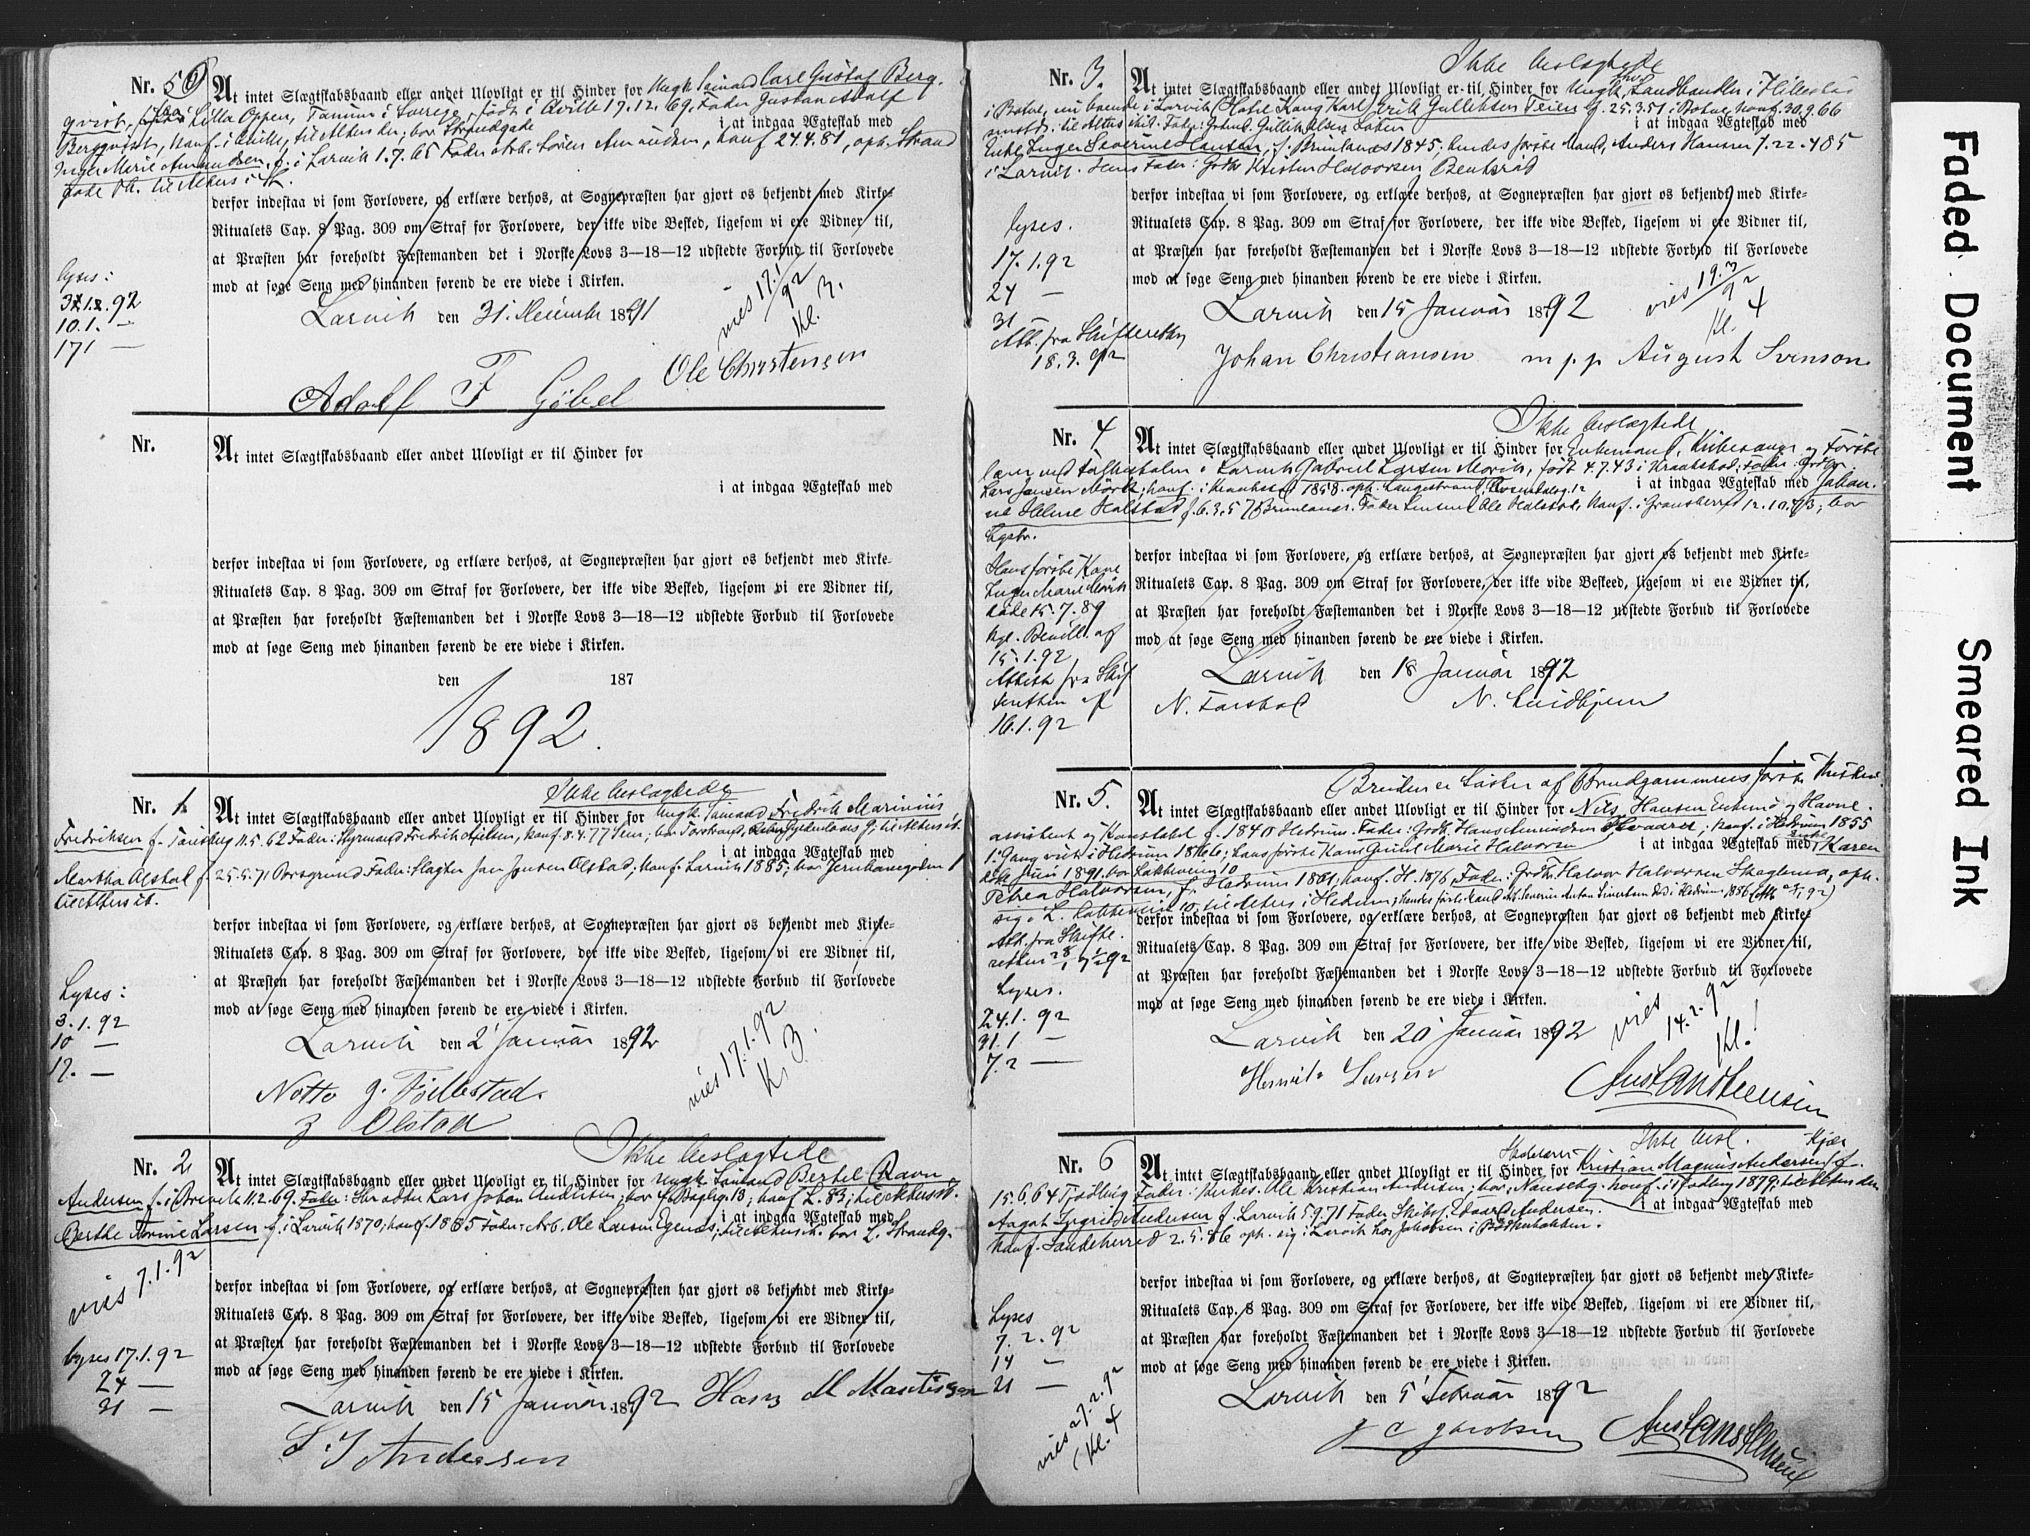 Nr. 50
At intet Slægtskabsbaand eller andet Ulovligt er til Hinder for Ungk. Sømand Carl Gustaf Berg-
qvist, fra Lilla Oppen, Tanum i Sverige, født i 17.12.69. Fader Gustav Adolf
Bergqvist, konf. i til Alters do; bor Strandgade i at indgaa Ægteskab med
Inger Marie Amundsen, f. i Larvik 1.7.65 Fader Arb. Søren Amundsen, konf 24.4.81, oph. Strand
gade til Alters i
derfor indestaa vi som Forlovere, og erklære derhos, at Sognepræsten har gjort os bekjendt med Kirke-
Ritualets Cap. 8 Pag. 309 om Straf for Forlovere, der ikke vide Besked, ligesom vi ere Vidner til,
at Præsten har foreholdt Fæstemanden det i Norske Lovs 3—18—12 udstedte Forbud til Forlovede
mod at søge Seng med hinanden førend de ere viede i Kirken.
lyses:
92
10.1. —
17 1 —
Larvik den 31. December 1891
vies 17.1/92
Kl. 3.
Adolf F Göbel
Ole Christensen
Nr.
At intet Slægtskabsbaand eller andet Ulovligt er til Hinder for
i at indgaa Ægteskab med
derfor indestaa vi som Forlovere, og erklære derhos, at Sognepræsten har gjort os bekjendt med Kirke-
Ritualets Cap. 8 Pag. 309 om Straf for Forlovere, der ikke vide Besked, ligesom vi ere Vidner til,
at Præsten har foreholdt Fæstemanden det i Norske Lovs 3—18—12 udstedte Forbud til Forlovede
mod at søge Seng med hinanden førend de ere viede i Kirken.
den 187
1892.
Ikke beslægtede
Nr. 1
At intet Slægtskabsbaand eller andet Ulovligt er til Hinder for Ungk. Sømand Fredrik Marinius
Fredriksen f. Tønsberg 11.5.62 Fader: Styrmand Fredrik konf. 8.4.77
i at indgaa Ægteskab med
Martha Olstad f. 25.5.71 Porsgrund Fader: Slagter Jan Jensen Olstad; konf. Larvik 1885; bor Jernbanegaden 1
til Alters
derfor indestaa vi som Forlovere, og erklære derhos, at Sognepræsten har gjort os bekjendt med Kirke-
Ritualets Cap. 8 Pag. 309 om Straf for Forlovere, der ikke vide Besked, ligesom vi ere Vidner til,
at Præsten har foreholdt Fæstemanden det i Norske Lovs 3—18—12 udstedte Forbud til Forlovede
mod at søge Seng med hinanden førend de ere viede i Kirken.
Lyses:
3.1.92
10 —
17. —
Larvik den 2' Januar 1892
vies 17.1.92
K. 3.
Notto J. Tollestad.
J Olstad
Ikke beslægtede
Nr. 2
At intet Slægtskabsbaand eller andet Ulovligt er til Hinder for Ungk. Sømand Bertel Ravn
Andersen f. i Brevik 11.2.69. Fader: Lars Johan Andersen; bor 13; konf. L. 83; til Alters
i at indgaa Ægteskab med
Berthe Larsen f. i Larvik 1870, konf. 1885 Fader: Arb. Ole Larsen bor L. Strandg.
vies 7.1.92
derfor indestaa vi som Forlovere, og erklære derhos, at Sognepræsten har gjort os bekjendt med Kirke-
Ritualets Cap. 8 Pag. 309 om Straf for Forlovere, der ikke vide Besked, ligesom vi ere Vidner til,
at Præsten har foreholdt Fæstemanden det i Norske Lovs 3—18—12 udstedte Forbud til Forlovede
mod at søge Seng med hinanden førend de ere viede i Kirken.
lyses 17.1.92
24 —
31 —
Larvik den 15 Januar 1892
Hans M
Andersen
Ikke beslægtede
Nr. 3.
At intet Slægtskabsbaand eller andet Ulovligt er til Hinder for Ungk. Landhandler i Hillestad
i Botne, nu boende i Larvik Hotel Kong Karl Erik Gulliksen Teien f. 25.3.51 i Botne, konf. 30.9.66
til Alters Fader: Gullik Olsen
i at indgaa Ægteskab med
Enke Inger Severine Hansen, f. Brunlanes 1845; hendes første Mand, Anders Hansen 7.22.4.85
i Larvik. Fader: Kristen Halvorsen Bentsrød
derfor indestaa vi som Forlovere, og erklære derhos, at Sognepræsten har gjort os bekjendt med Kirke-
Ritualets Cap. 8 Pag. 309 om Straf for Forlovere, der ikke vide Besked, ligesom vi ere Vidner til,
at Præsten har foreholdt Fæstemanden det i Norske Lovs 3—18—12 udstedte Forbud til Forlovede
mod at søge Seng med hinanden førend de ere viede i Kirken.
lyses.
17.1.92
24 —
31 —
Att. fra Skifteretten
18.3.92
Larvik den 15 Januar 1892
vies 19.3/92
Kl. 4
Johan Christiansen m p p August Svenson
Ikke beslægtede
Nr. 4
At intet Slægtskabsbaand eller andet Ulovligt er til Hinder for Enkemand, Kirkesanger og Første
lærer ved Folkeskolen i Larvik Gabriel Larsen Mørik, født 4.7.43 i Fader:
Lars Jansen konf. i 1858. oph. Langestrand,
i at indgaa Ægteskab med Johan-
ne Helene Halstad f. 6.3.57 Brunlanes. Fader Ole Halstad, konf. i Gransherred 12.10.73; bor
Hans første Kone
Inger Marie Mørik
døde 15.7.89
kgl. Bevill. af
15.1.92
Attest fra Skif
teretten af
16.1.92
derfor indestaa vi som Forlovere, og erklære derhos, at Sognepræsten har gjort os bekjendt med Kirke-
Ritualets Cap. 8 Pag. 309 om Straf for Forlovere, der ikke vide Beskeed, ligesom vi ere Vidner til,
at Præsten har foreholdt Fæstemanden det i Norske Lovs 3—18—12 udstedte Forbud til Forlovede
mod at søge Seng med hinanden førend de ere viede i Kirken.
Larvik den 18 Januar 1892
N. N. Lindhjem
Bruden er Søster af Brudgommens første Hustru
Nr. 5.
At intet Slægtskabsbaand eller andet Ulovligt er til Hinder for Nils Hansen Enkem. og Havne-
assistent og Konstabel f. 1840 Hedrum. Fader: Hans konf. i Hedrum 1855
1. Gang viet i Hedrum 1866; hans første Kone Marie Halvorsen
i at indgaa Ægteskab med Enke Karen
døde Juni 1891. bor 10
Petrea Halvorsen, f. Hedrum 1861, konf. H. 1876, Fader: Halvor Halvorsen oph.
sig i L. 10, til Alters i Hedrum; hendes første Mand Severin Anton i Hedrum 1886
Att. fra Skifte-
retten
Lyses.
24.1.92
31.1 —
7.2 —
derfor indestaa vi som Forlovere, og erklære derhos, at Sognepræsten har gjort os bekjendt med Kirke-
Ritualets Cap. 8 Pag. 309 om Straf for Forlovere, der ikke vide Besked, ligesom vi ere Vidner til,
at Præsten har foreholdt Fæstemanden det i Norske Lovs 3—18—12 udstedte Forbud til Forlovede
mod at søge Seng med hinanden førend de ere viede i Kirken.
Larvik den 20' Januar 1892
vies
14.2.92
Kl. 1
Henrik
Ikke besl.
Nr. 6
At intet Slægtskabsbaand eller andet Ulovligt er til Hinder for Kristian Magnus Andersen Kjær f.
15.6.64 Tjødling Fader: Ole Kristian Andersen; bor, konf. i Tjødling 1879,
i at indgaa Ægteskab med
Aagot Ingrid Andersen f. Larvik 5.9.71 Fader Skibsf. Edvard Andersen.
konf. Sandeherred 2.5.86 oph. sig i Larvik hos Jakobsen i
derfor indestaa vi som Forlovere, og erklære derhos, at Sognepræsten har gjort os bekjendt med Kirke-
Ritualets Cap. 8 Pag. 309 om Straf for Forlovere, der ikke vide Besked, ligesom vi ere Vidner til,
at Præsten har foreholdt Fæstemanden det i Norske Lovs 3—18—12 udstedte Forbud til Forlovede
mod at søge Seng med hinanden førend de ere viede i Kirken.
Lyses
7.2.92
14 —
21 —
vies 27.2.92
Kl. 4
Larvik den 5' Februar 1892
J C Jacobsen
Faded Document
Smeared Ink